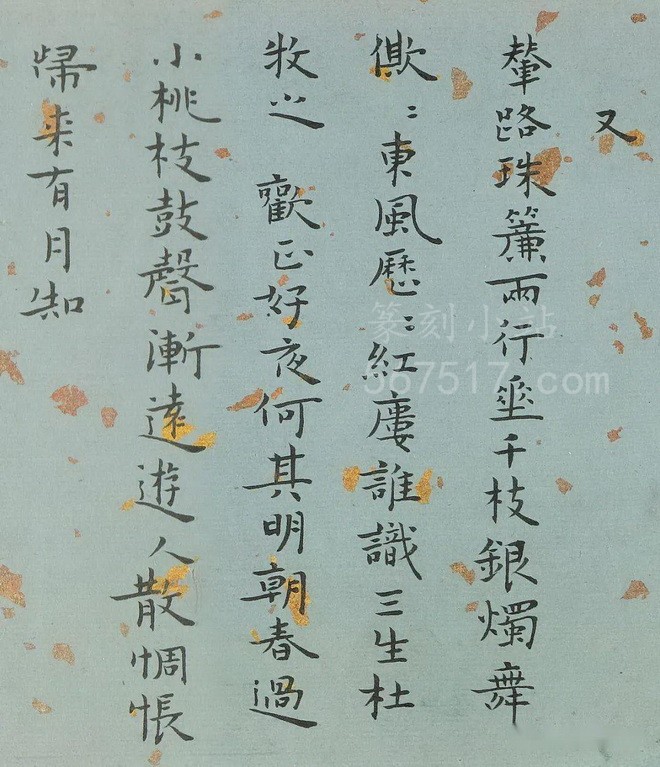 又
輦路珠簾兩行垂千枝銀燭舞
僛：東風歷：紅廔誰識三生杜
牧之 歡正好夜何其明朝春過
小桃枝鼓聲漸遠遊人散惆悵
歸来有月知
篆刻小站